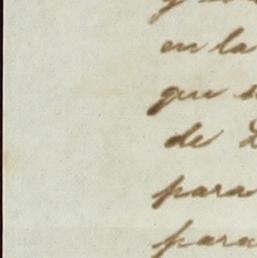 en la
que
de
para
para